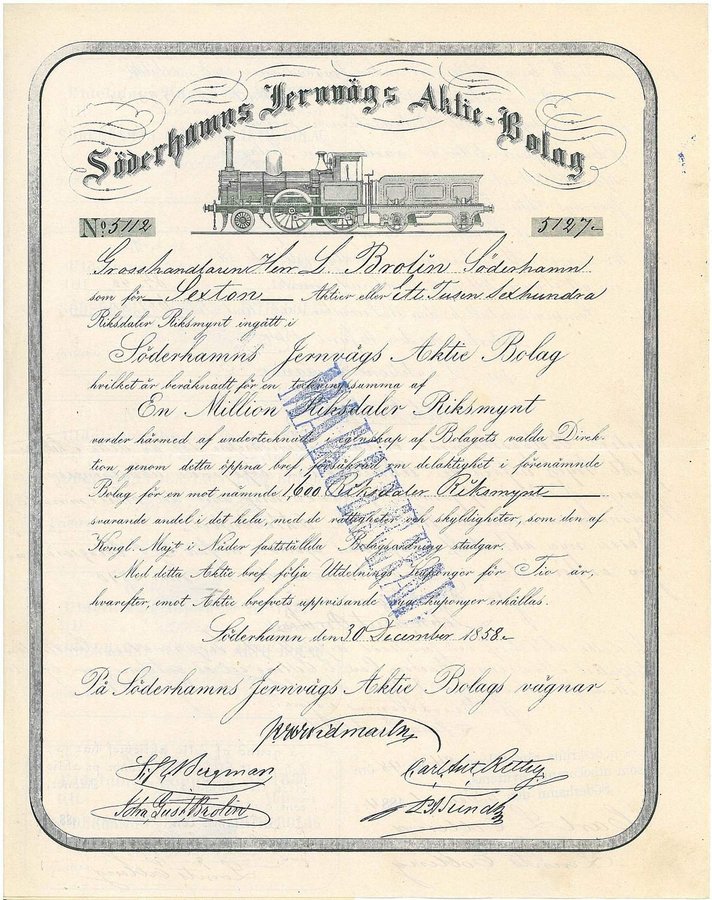 Söderhamns Jernvägs Aktie-Bolag
No. 5112
5127.
Grosshandlaren Herr L. Brolin Söderhamn
som för Sexton Aktier eller Ett Tusen Sexhundra
Riksdaler Riksmynt ingått i
Söderhamns Jernvägs Aktie Bolag
hvilket är beräknadt för en teckningssumma af
En Million Riksdaler Riksmynt
varder härmed af undertecknade i egenskap af Bolagets valda Direk-
tion, genom detta öppna bref, försäkrad om delaktighet i förenämnde
Bolag för en mot nämnde 1,600 Riksdaler Riksmynt
svarande andel i det hela, med de rättigheter och skyldigheter, som den af
Kongl. Majt i Nåder fastställda Bolagsordning stadgar.
Med detta Aktie bref följa Utdelnings Kuponger för Tio år,
hvarefter, emot Aktie brefvets uppvisande nya kuponger erhållas.
Söderhamn den 30 December 1858.
På Söderhamns Jernvägs Aktie Bolags vägnar
Widmark
Bergman
Carl Ant. Rettig
Joh. Gust. Brolin
MAKULERAD